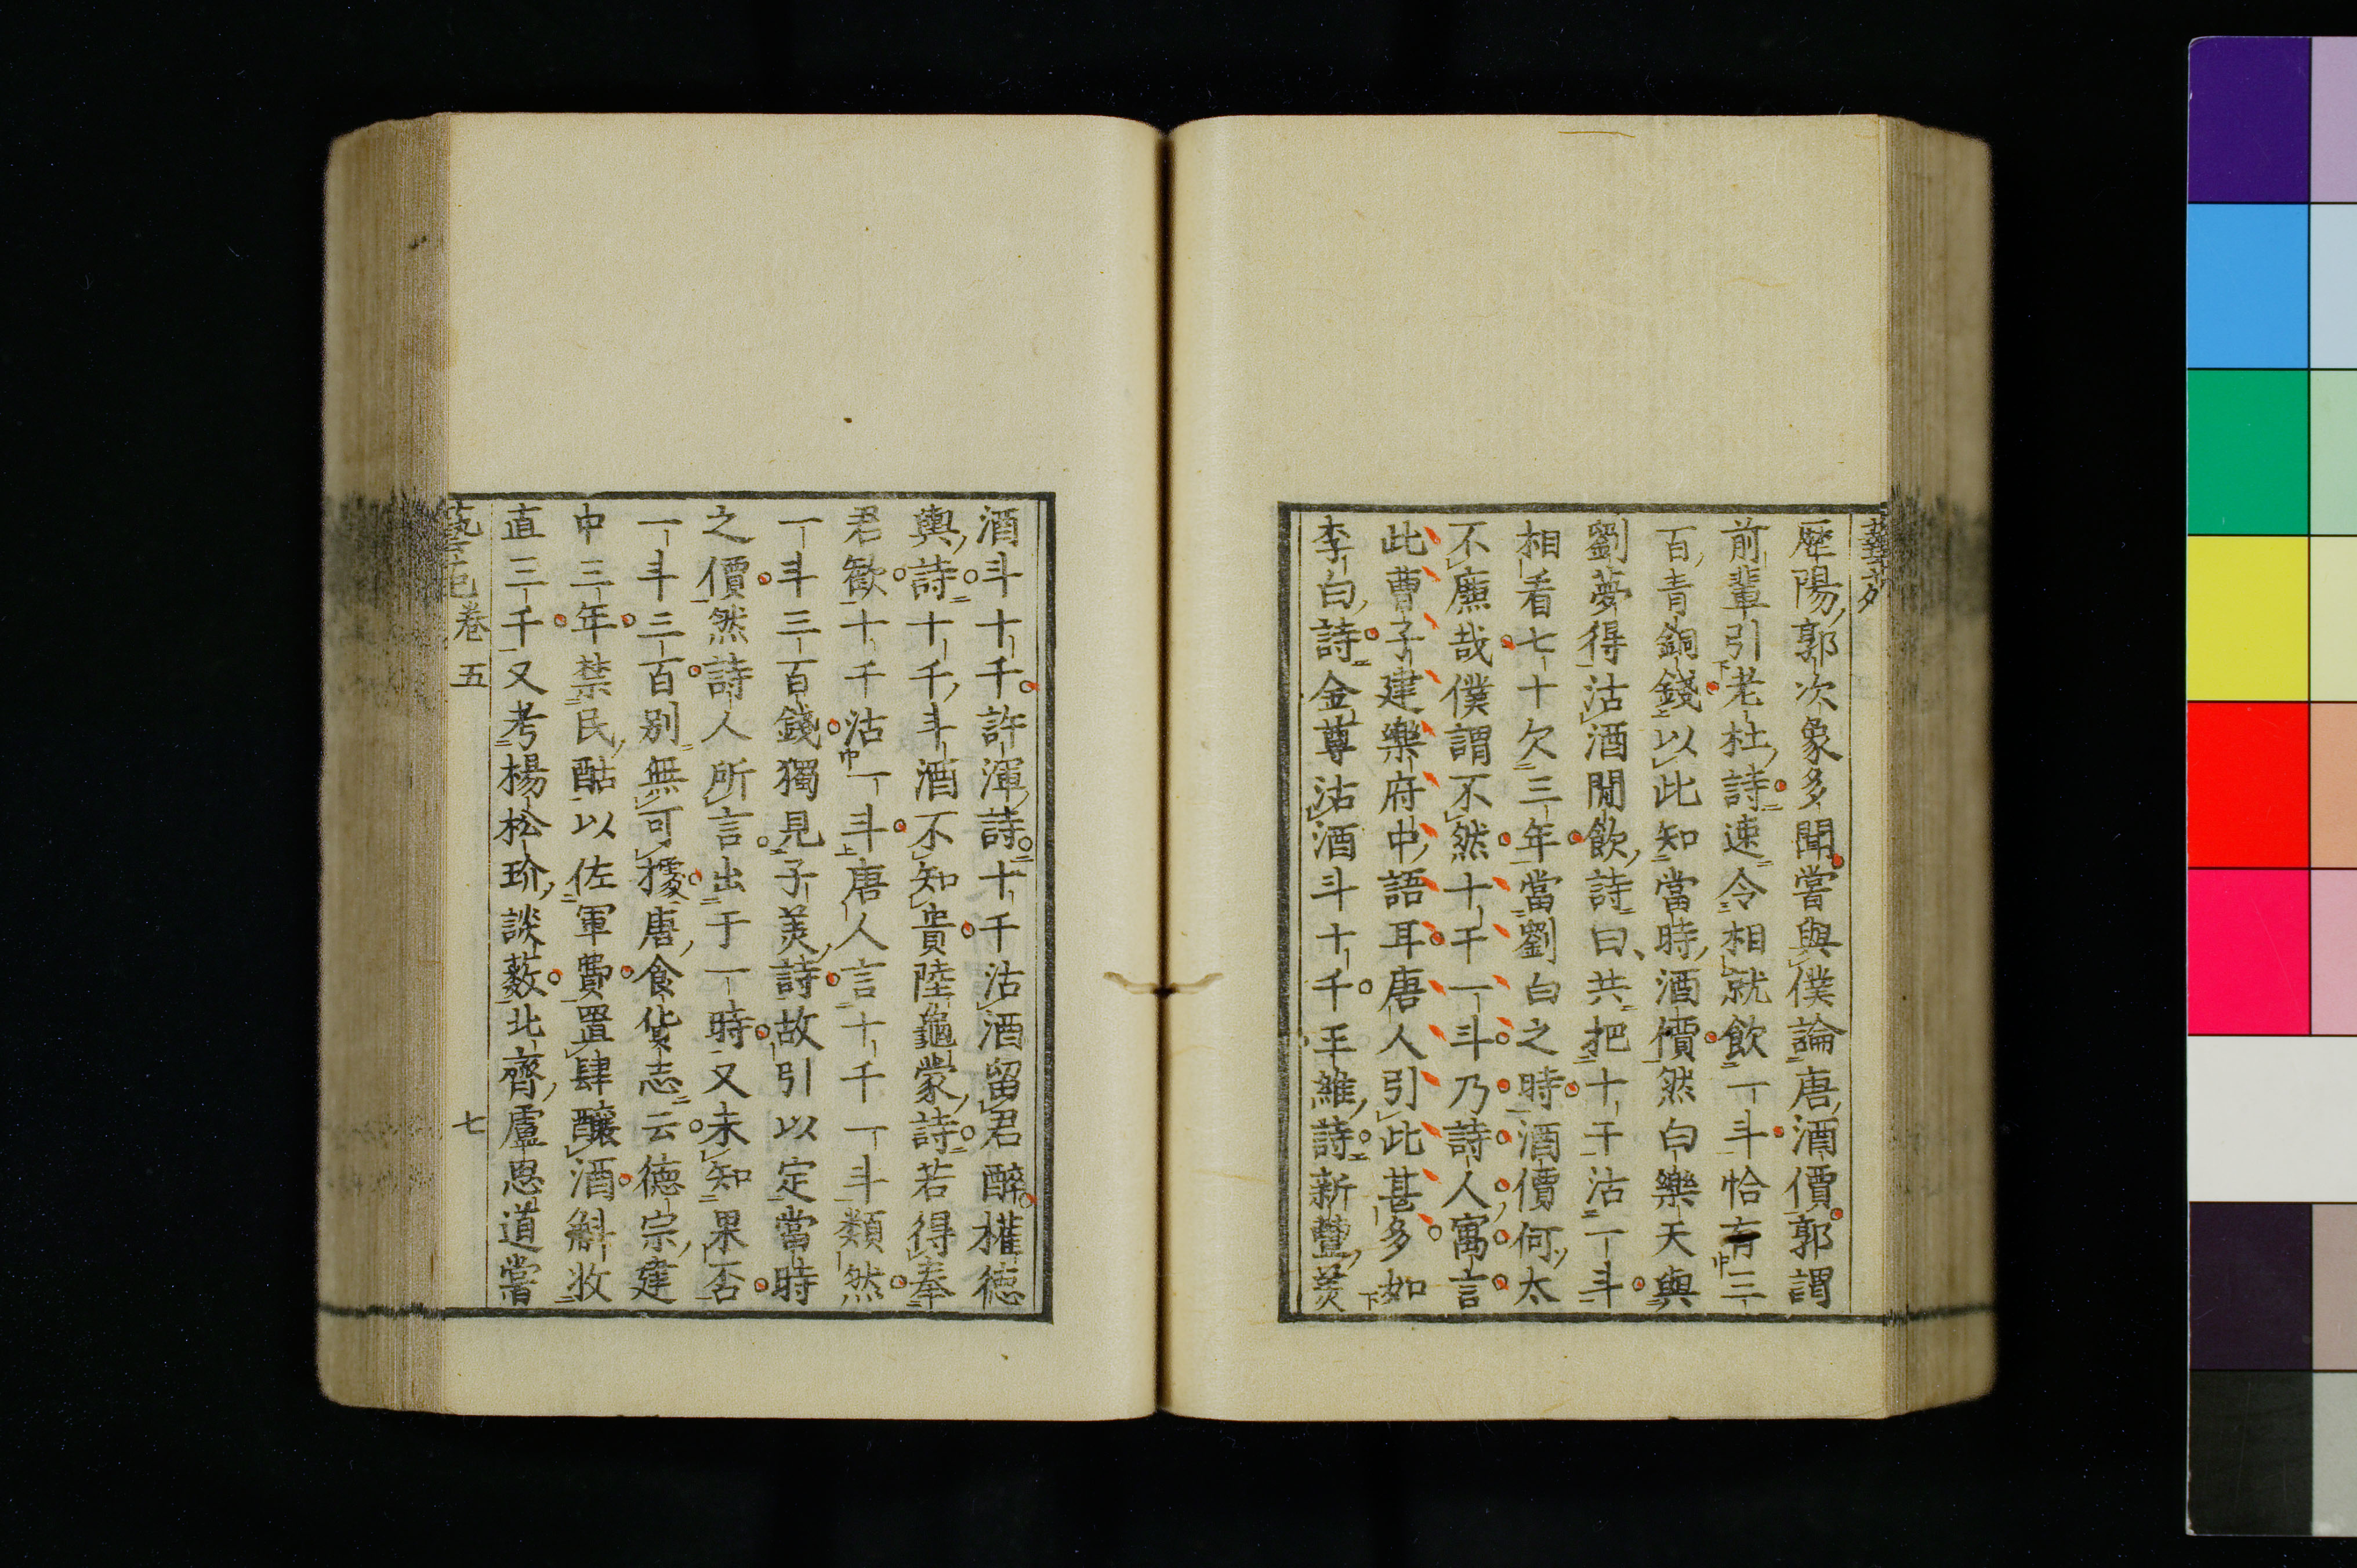 歷陽郭次象多聞嘗與僕論唐酒價郭謂
前輩引老杜詩速令相就飲一斗恰有三
百青銅錢以此知當時酒價然白樂天與
劉夢得沽酒閒飲詩曰共把十千沽一斗
相看七十欠三年當劉白之時酒價何太
不廉哉僕謂不然十千一斗乃詩人寓言
此曹子建樂府中語耳唐人引此甚多如
李白詩金尊沽酒斗十千王維詩新豐美
酒斗十千許渾詩十千沽酒留君醉權德
輿詩十千斗酒不知貴陸龜蒙詩若得奉
君歡十千沽一斗唐人言十千一斗類然
一斗三百錢獨見子美詩故引以定當時
之價然詩人所言出于一時又未知果否
一斗三百別無可據唐食貨志云德宗建
中三年禁民酤以佐軍費置肆釀酒斛收
直三千又考楊松玠談藪北齊盧思道嘗
卷五 七